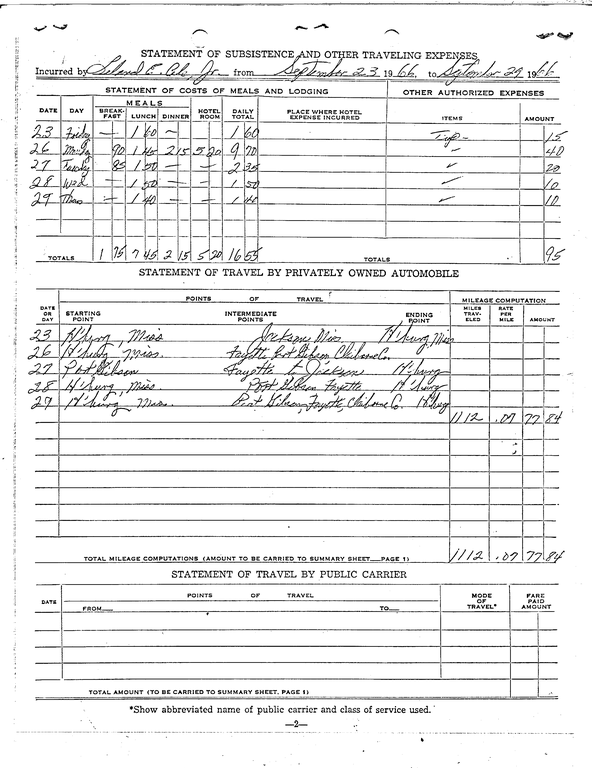 STATEMENT OF SUBSISTENCE AND OTHER TRAVELING EXPENSES
Incurred by Leland E. Cole, Jr. from September 23, 1966, to September 29 1966
STATEMENT OF COSTS OF MEALS AND LODGING OTHER AUTHORIZED EXPENSES
MEALS
DATE DAY BREAK-FAST LUNCH DINNER HOTEL ROOM DAILY TOTAL PLACE WHERE HOTEL EXPENSE INCURRED ITEMS AMOUNT
23 Friday — 1 60 — 1 60 Tip — 15
26 Monday 90 1 45 2 15 5 20 9 70 40
27 Tuesday 85 1 50 — 2 35 20
28 Wed — 1 50 — 1 50 10
29 Thurs — 1 40 — 1 40 10
TOTALS 1 75 7 45 2 15 5 20 16 55 TOTALS 95
STATEMENT OF TRAVEL BY PRIVATELY OWNED AUTOMOBILE
POINTS OF TRAVEL MILEAGE COMPUTATION
DATE OR DAY STARTING POINT INTERMEDIATE POINTS ENDING POINT MILES TRAV-ELED RATE PER MILE AMOUNT
23 H'burg, Miss Jackson, Miss. H'burg, Miss
26 H'burg, Miss. Fayette, Port Gibson Claiborne Co.
27 Port Gibson Fayette to Jackson H'burg
28 H'burg, Miss. Port Gibson, Fayette H'burg
29 H'burg Miss. Port Gibson, Fayette, Claiborne Co. H'burg
1112 .07 77 84
TOTAL MILEAGE COMPUTATIONS (AMOUNT TO BE CARRIED TO SUMMARY SHEET—PAGE 1) 1112 .07 77 84
STATEMENT OF TRAVEL BY PUBLIC CARRIER
DATE POINTS OF TRAVEL MODE OF TRAVEL* FARE PAID AMOUNT
FROM— TO—
TOTAL AMOUNT (TO BE CARRIED TO SUMMARY SHEET, PAGE 1)
*Show abbreviated name of public carrier and class of service used.
—2—